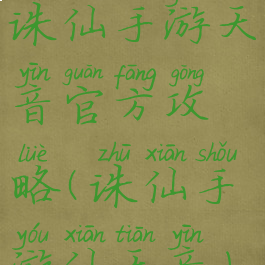 诛仙手游天
yīn guān fāng gōng
音官方攻
lüè zhū xiān shǒu
略(诛仙手
yóu xiān tiān yīn
游仙天音)